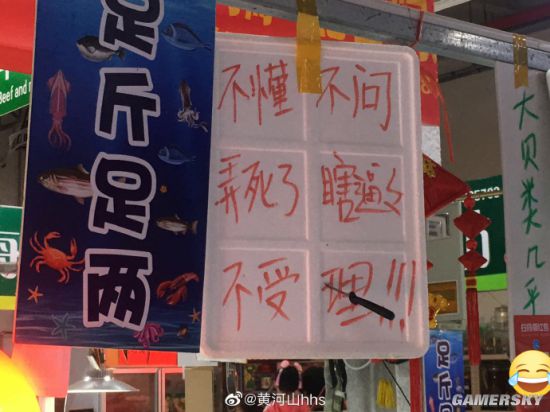 足斤足两
Beef and
不懂 不问
弄死了 瞎逼
不受 理!!!
大贝类几乎
足斤
@黄河山hhs
GAMERSKY